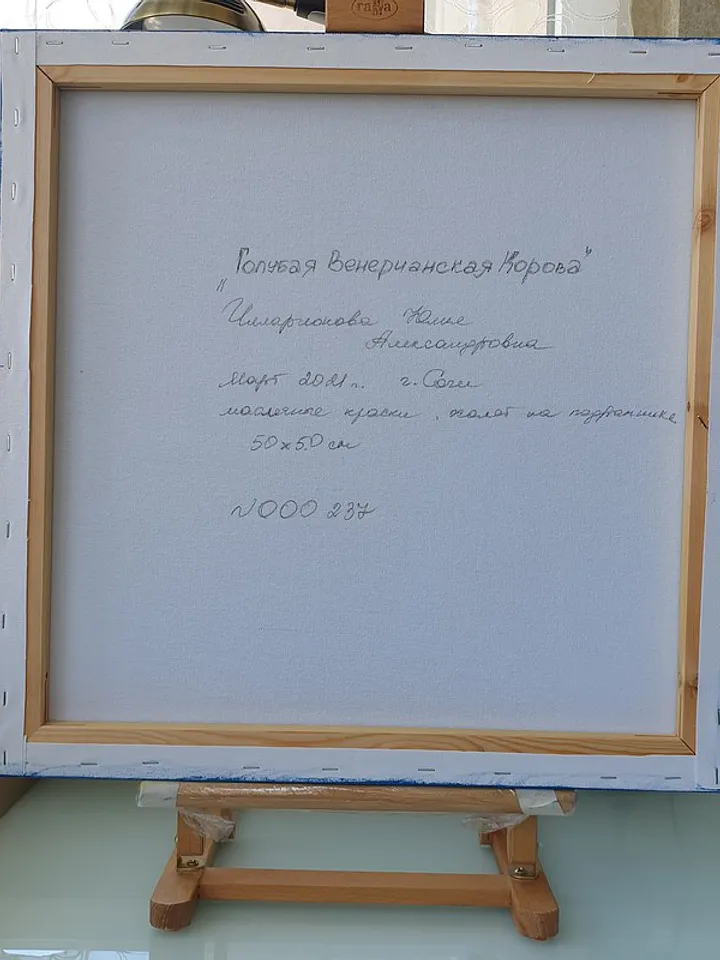 гамма
"Голубая Венерианская Корова"
Илларионова Юлия
Александровна
Март 2021 г. г. Сочи
масляные краски, холст на подрамнике
50х50 см
N000 237